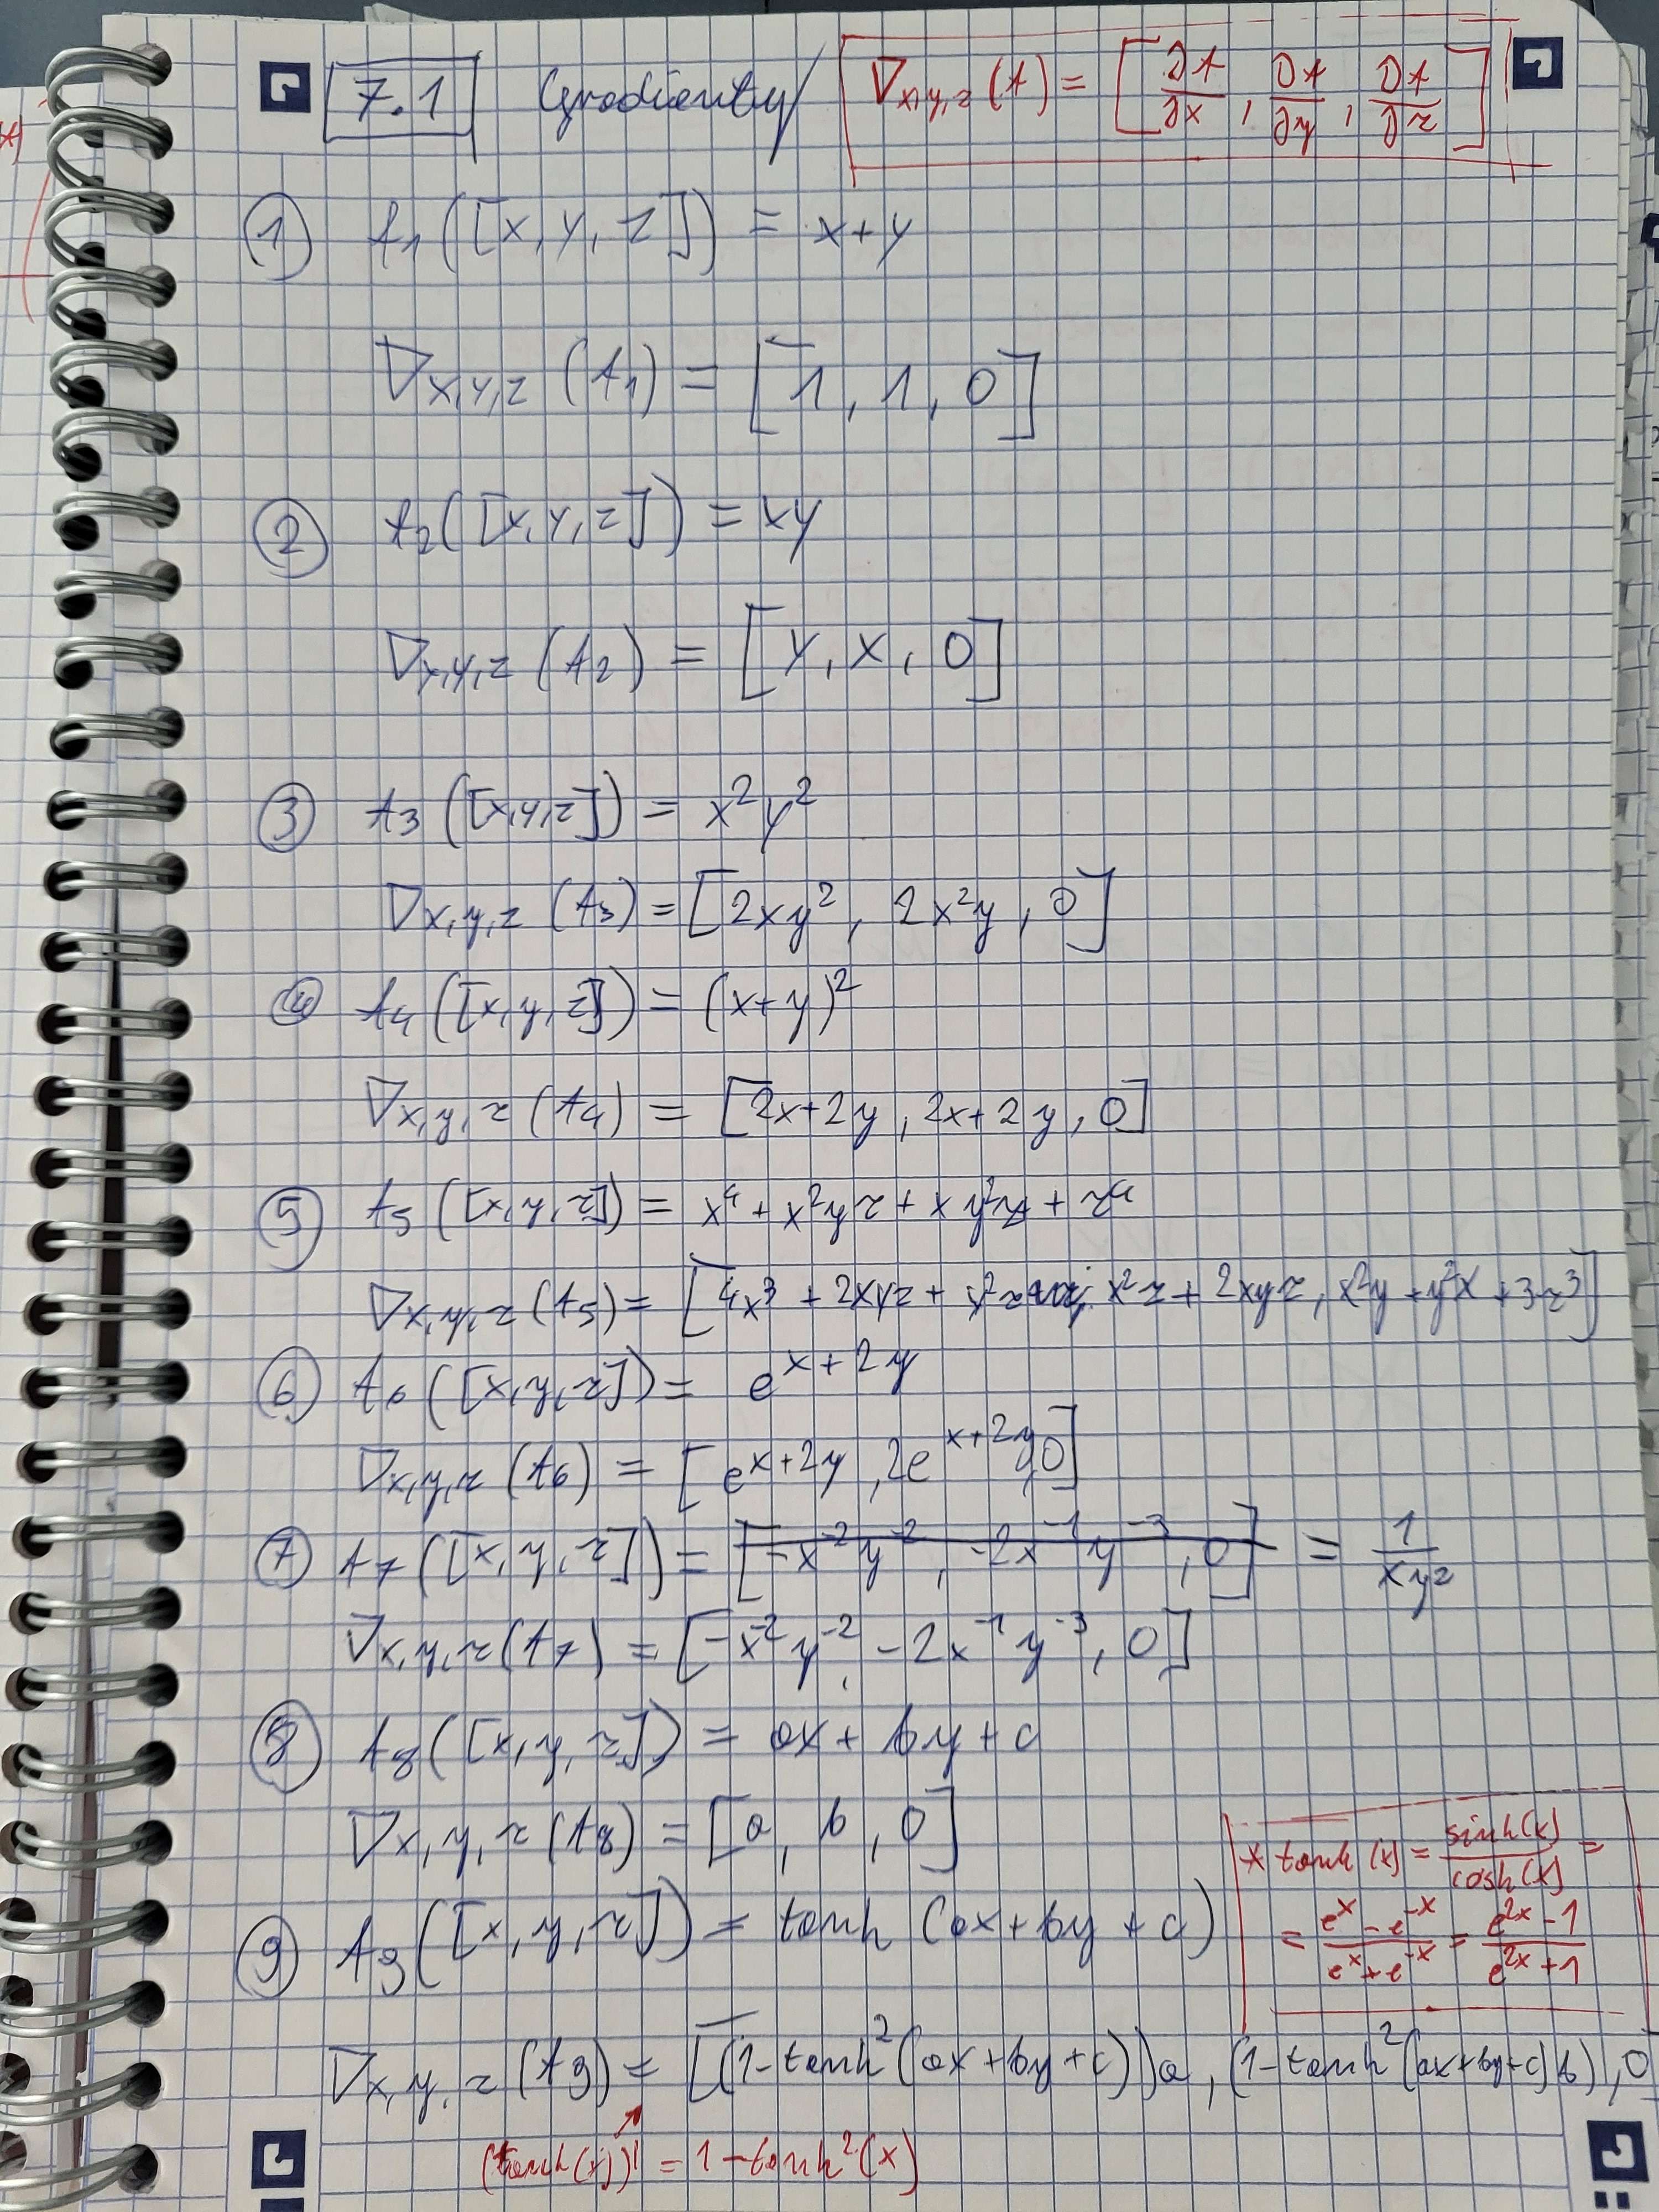 7.1 Gradienty ∇x,y,z (f) = [∂f/∂x, ∂f/∂y, ∂f/∂z]
① f1([x, y, z]) = x+y
∇x,y,z (f1) = [1, 1, 0]
② f2([x, y, z]) = xy
∇x,y,z (f2) = [y, x, 0]
③ f3([x,y,z]) = x²y²
∇x,y,z (f3) = [2xy², 2x²y, 0]
④ f4([x,y,z]) = (x+y)²
∇x,y,z (f4) = [2x+2y, 2x+2y, 0]
⑤ f5([x,y,z]) = x⁴ + x²yz + xy²z + z⁴
∇x,y,z (f5) = [4x³ + 2xyz + y²z, x²z + 2xyz, x²y + y²x + 3z³]
⑥ f6([x,y,z]) = e^(x+2y)
∇x,y,z (f6) = [e^(x+2y), 2e^(x+2y), 0]
⑦ f7([x,y,z]) = [-x⁻²y⁻², -2x⁻¹y⁻³, 0] = 1/xy²
∇x,y,z (f7) = [-x⁻²y⁻², -2x⁻¹y⁻³, 0]
⑧ f8([x,y,z]) = ax + by + c
∇x,y,z (f8) = [a, b, 0]
* tanh(x) = sinh(x)/cosh(x) =
= (e^x - e^-x)/(e^x + e^-x) = (e^2x - 1)/(e^2x + 1)
⑨ f9([x, y, z]) = tanh (ax + by + c)
∇x,y,z (f9) = [(1-tanh²(ax+by+c))a, (1-tanh²(ax+by+c)b), 0
(tanh(x))' = 1 - tanh²(x)